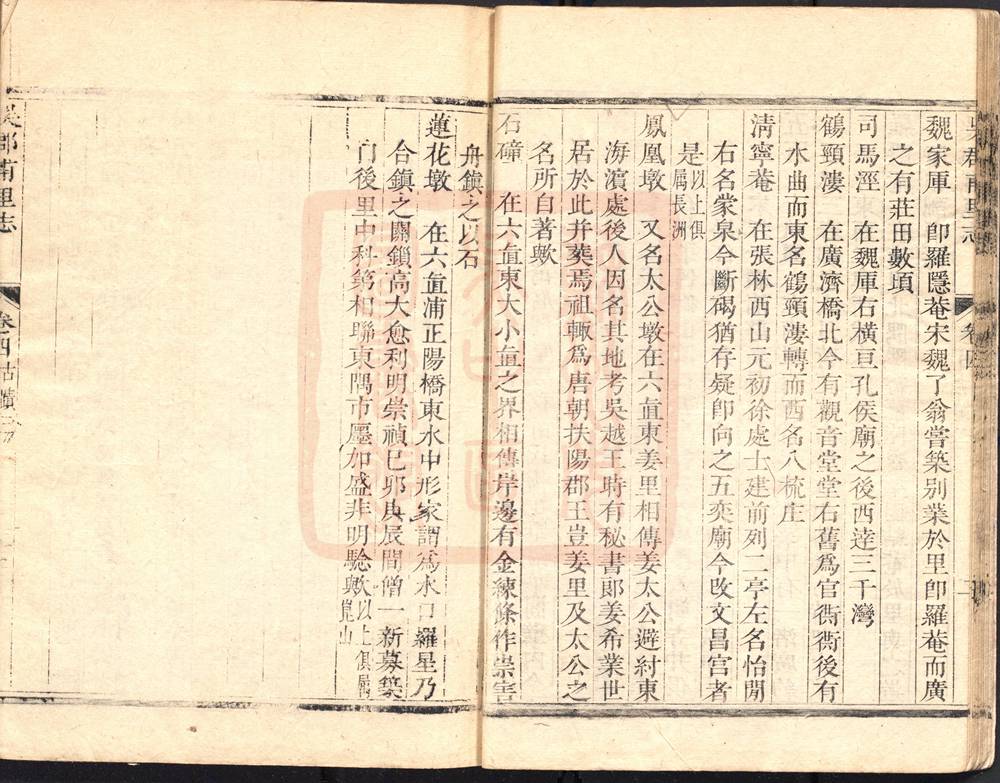 吳郡甫里志
卷四
魏家庫 卽羅隱庵宋魏了翁嘗築别業於里卽羅菴而廣
之有莊田數頃
司馬涇 在魏厙右橫亘孔侯廟之後西逹三千灣
鶴頸漊 在廣濟橋北今有觀音堂堂右舊爲官衖衖後有
水曲而東名鶴頸漊轉而西名八梳庄
淸寧菴 在張林西山元初徐處士建前列二亭左名怡閒
右名蒙泉今斷碣猶存疑卽向之五奕廟今改文昌宮者
是以上俱屬長洲
鳳凰墩 又名太公墩在六直東姜里相傳姜太公避紂東
海濱處後人因名其地考吳越王時有秘書郞姜希業世
居於此并葬焉祖輙爲唐朝扶陽郡王豈姜里及太公之
名所自著歟
石碲 在六直東大小直之界相傳岸邊有金練條作祟害
舟鎭之以石
蓮花墩 在六直浦正陽橋東水中形家謂爲水口羅星乃
合鎭之關鎖高大愈利明崇禎己卯庚辰間僧一新募築
門後里中科第相聯東隅市廛加盛非明騐歟以上俱屬崑山
吳郡甫里志
卷四古蹟